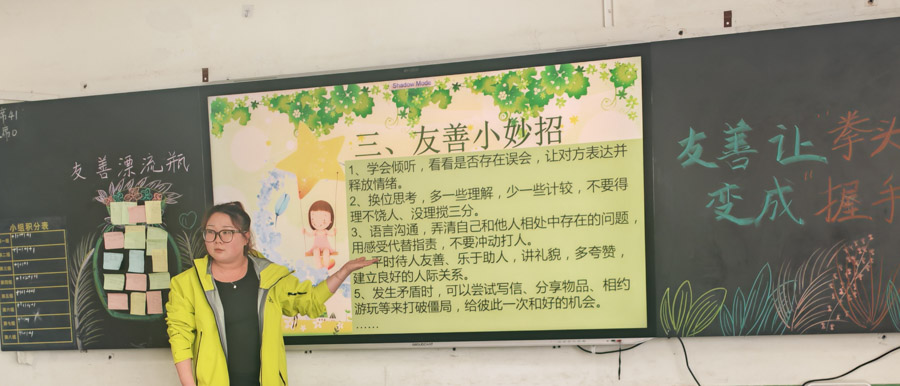 友善漂流瓶
小组积分表
Shadow Mode
三、友善小妙招
1、学会倾听，看看是否存在误会，让对方表达并
释放情绪。
2、换位思考，多一些理解，少一些计较，不要得
理不饶人、没理搅三分。
3、语言沟通，弄清自己和他人相处中存在的问题，
用感受代替指责，不要冲动打人。
平时待人友善、乐于助人，讲礼貌，多夸赞，
建立良好的人际关系。
5、发生矛盾时，可以尝试写信、分享物品、相约
游玩等来打破僵局，给彼此一次和好的机会。
......
友善让拳头
变成"握手